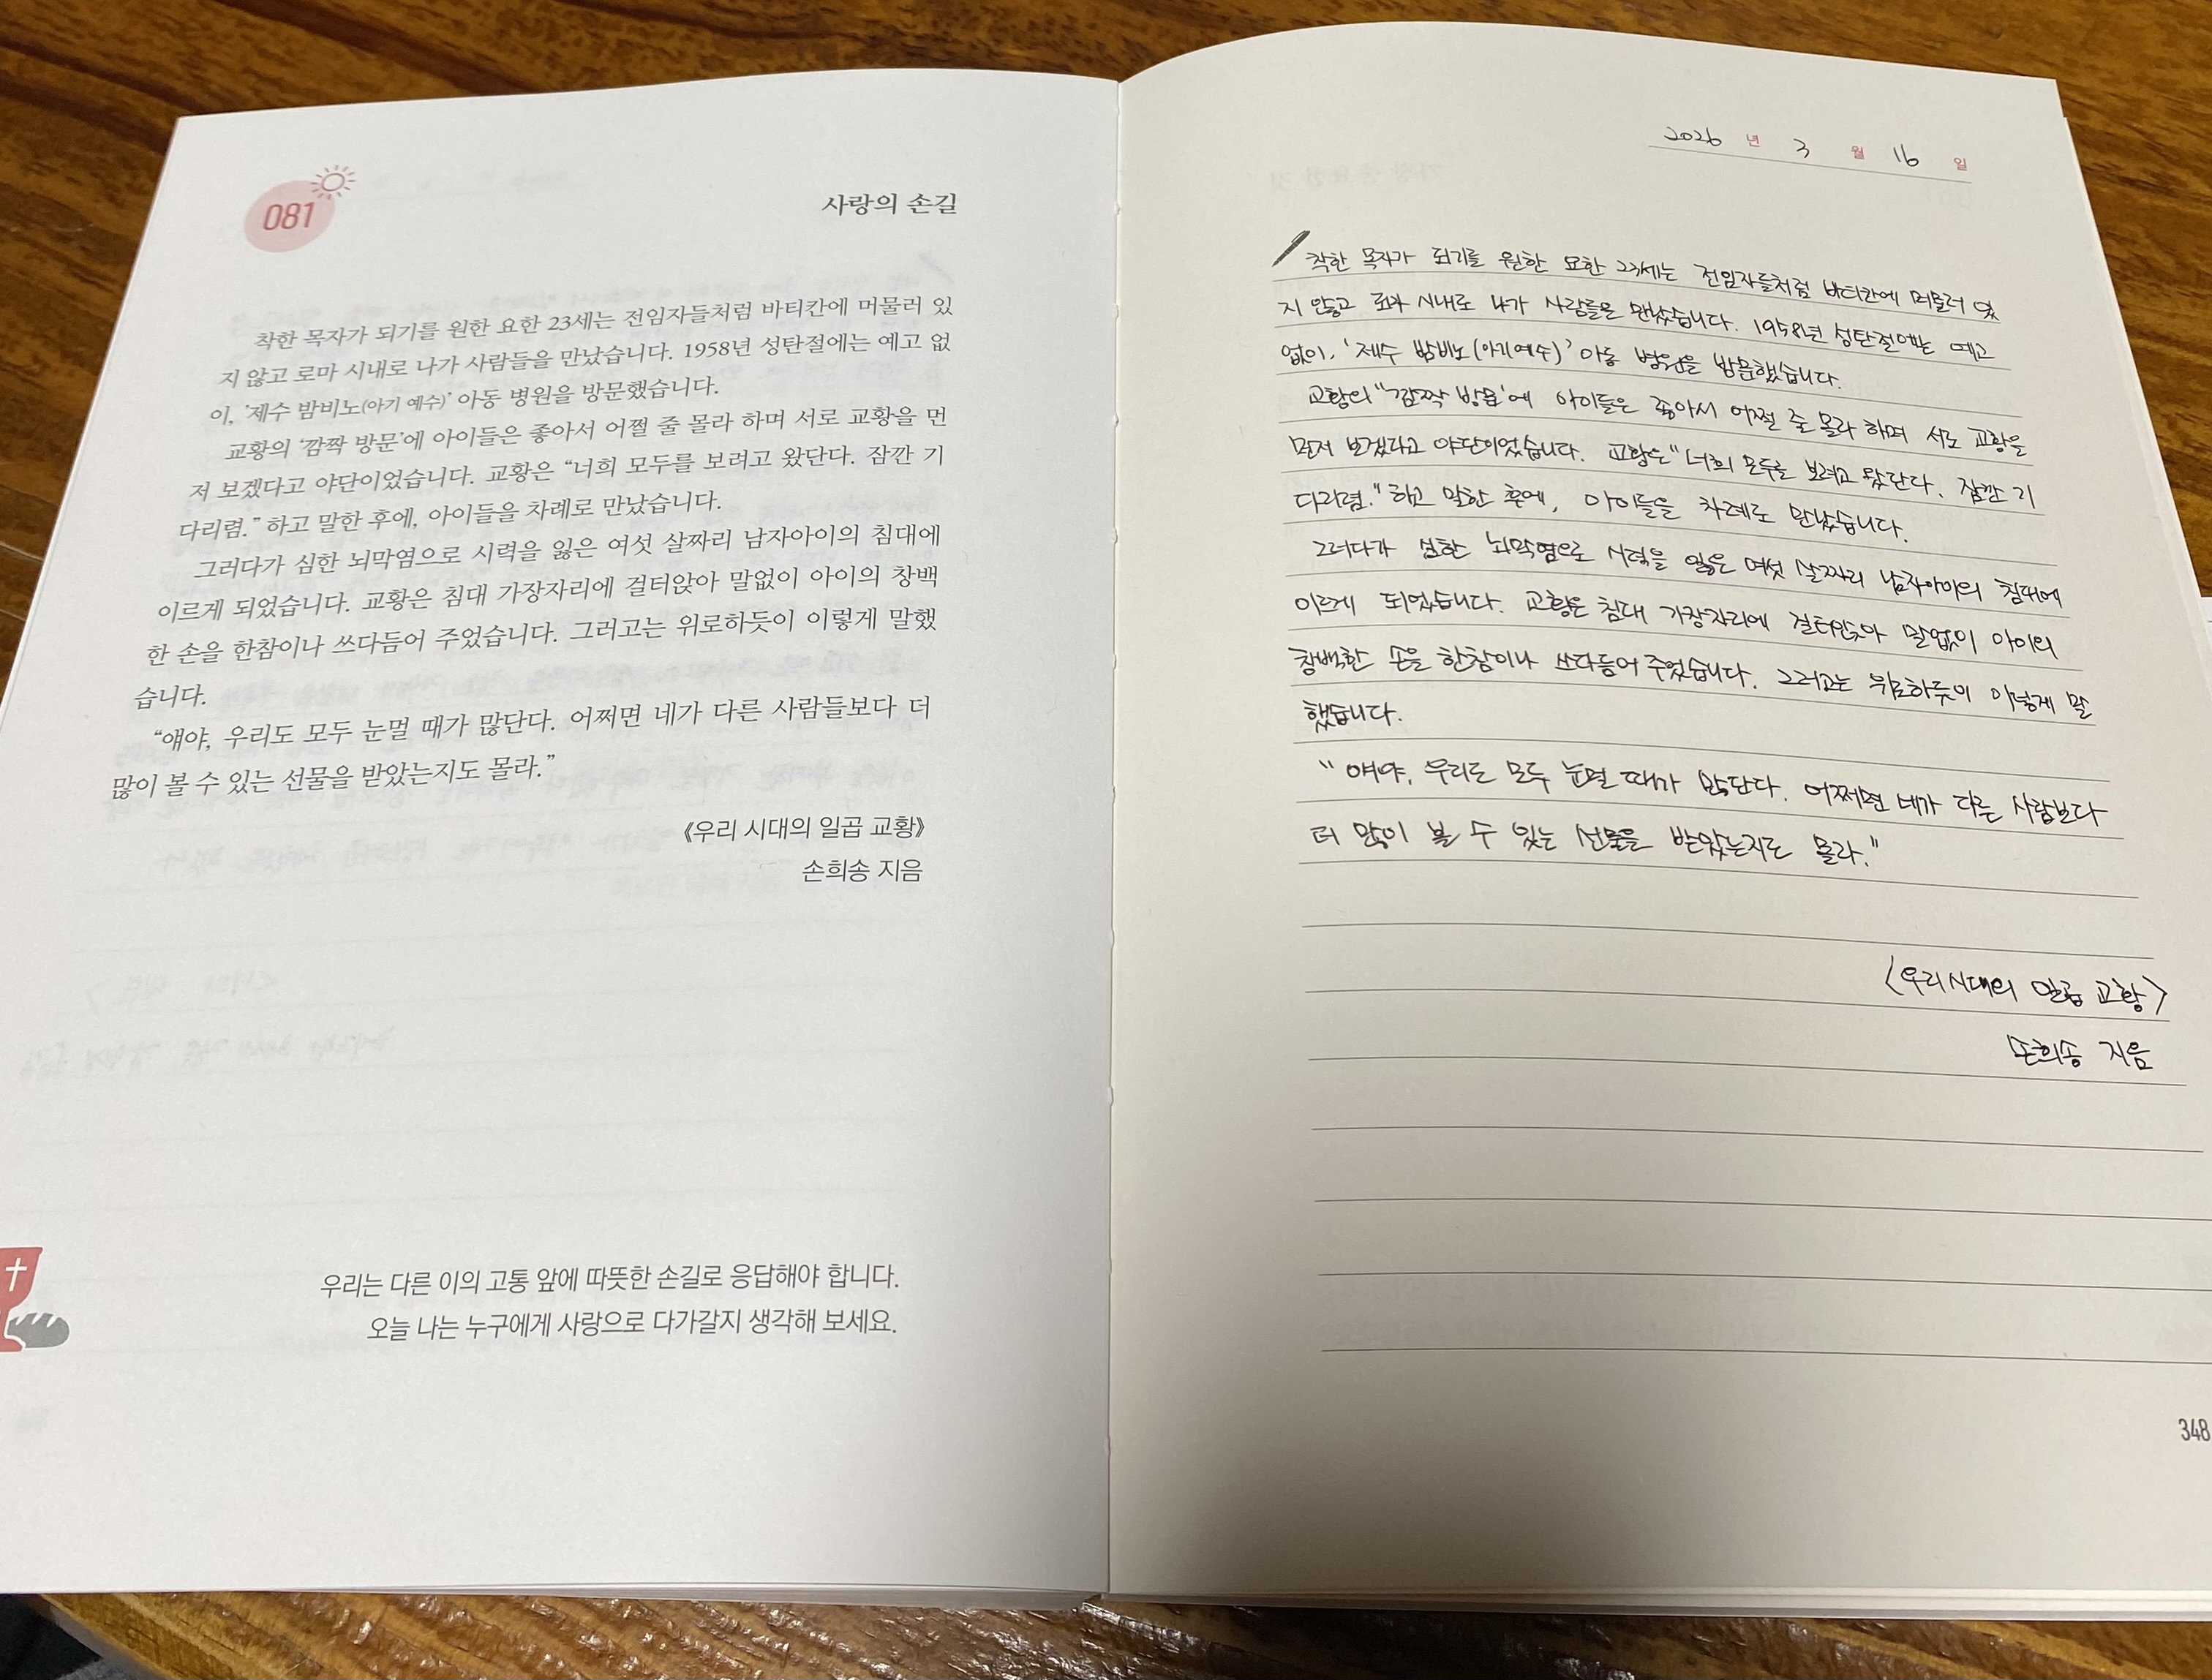 081
사랑의 손길
착한 목자가 되기를 원한 요한 23세는 전임자들처럼 바티칸에 머물러 있
지 않고 로마 시내로 나가 사람들을 만났습니다. 1958년 성탄절에는 예고 없
이, ‘제수 밤비노(아기 예수)’ 아동 병원을 방문했습니다.
교황의 ‘깜짝 방문’에 아이들은 좋아서 어쩔 줄 몰라 하며 서로 교황을 먼
저 보겠다고 야단이었습니다. 교황은 “너희 모두를 보려고 왔단다. 잠깐 기
다리렴.” 하고 말한 후에, 아이들을 차례로 만났습니다.
그러다가 심한 뇌막염으로 시력을 잃은 여섯 살짜리 남자아이의 침대에
이르게 되었습니다. 교황은 침대 가장자리에 걸터앉아 말없이 아이의 창백
한 손을 한참이나 쓰다듬어 주었습니다. 그러고는 위로하듯이 이렇게 말했
습니다.
“얘야, 우리도 모두 눈멀 때가 많단다. 어쩌면 네가 다른 사람들보다 더
많이 볼 수 있는 선물을 받았는지도 몰라.”
《우리 시대의 일곱 교황》
손희송 지음
우리는 다른 이의 고통 앞에 따뜻한 손길로 응답해야 합니다.
오늘 나는 누구에게 사랑으로 다가갈지 생각해 보세요.
2026 년 3 월 16 일
착한 목자가 되기를 원한 요한 23세는 전임자들처럼 바티칸에 머물러 있
지 않고 로마 시내로 나가 사람들을 만났습니다. 1958년 성탄절에는 예고
없이, ‘제수 밤비노(아기예수)’ 아동 병원을 방문했습니다.
교황의 “깜짝 방문’에 아이들은 좋아서 어쩔 줄 몰라 하며 서로 교황을
먼저 보겠다고 야단이었습니다. 교황은 “너희 모두를 보려고 왔단다. 잠깐 기
다리렴.” 하고 말한 후에, 아이들을 차례로 만났습니다.
그러다가 심한 뇌막염으로 시력을 잃은 여섯 살짜리 남자아이의 침대에
이르게 되었습니다. 교황은 침대 가장자리에 걸터앉아 말없이 아이의
창백한 손을 한참이나 쓰다듬어 주었습니다. 그러고는 위로하듯이 이렇게 말
했습니다.
“얘야, 우리도 모두 눈멀 때가 많단다. 어쩌면 네가 다른 사람보다
더 많이 볼 수 있는 선물을 받았는지도 몰라.”
〈우리시대의 일곱 교황〉
손희송 지음
348